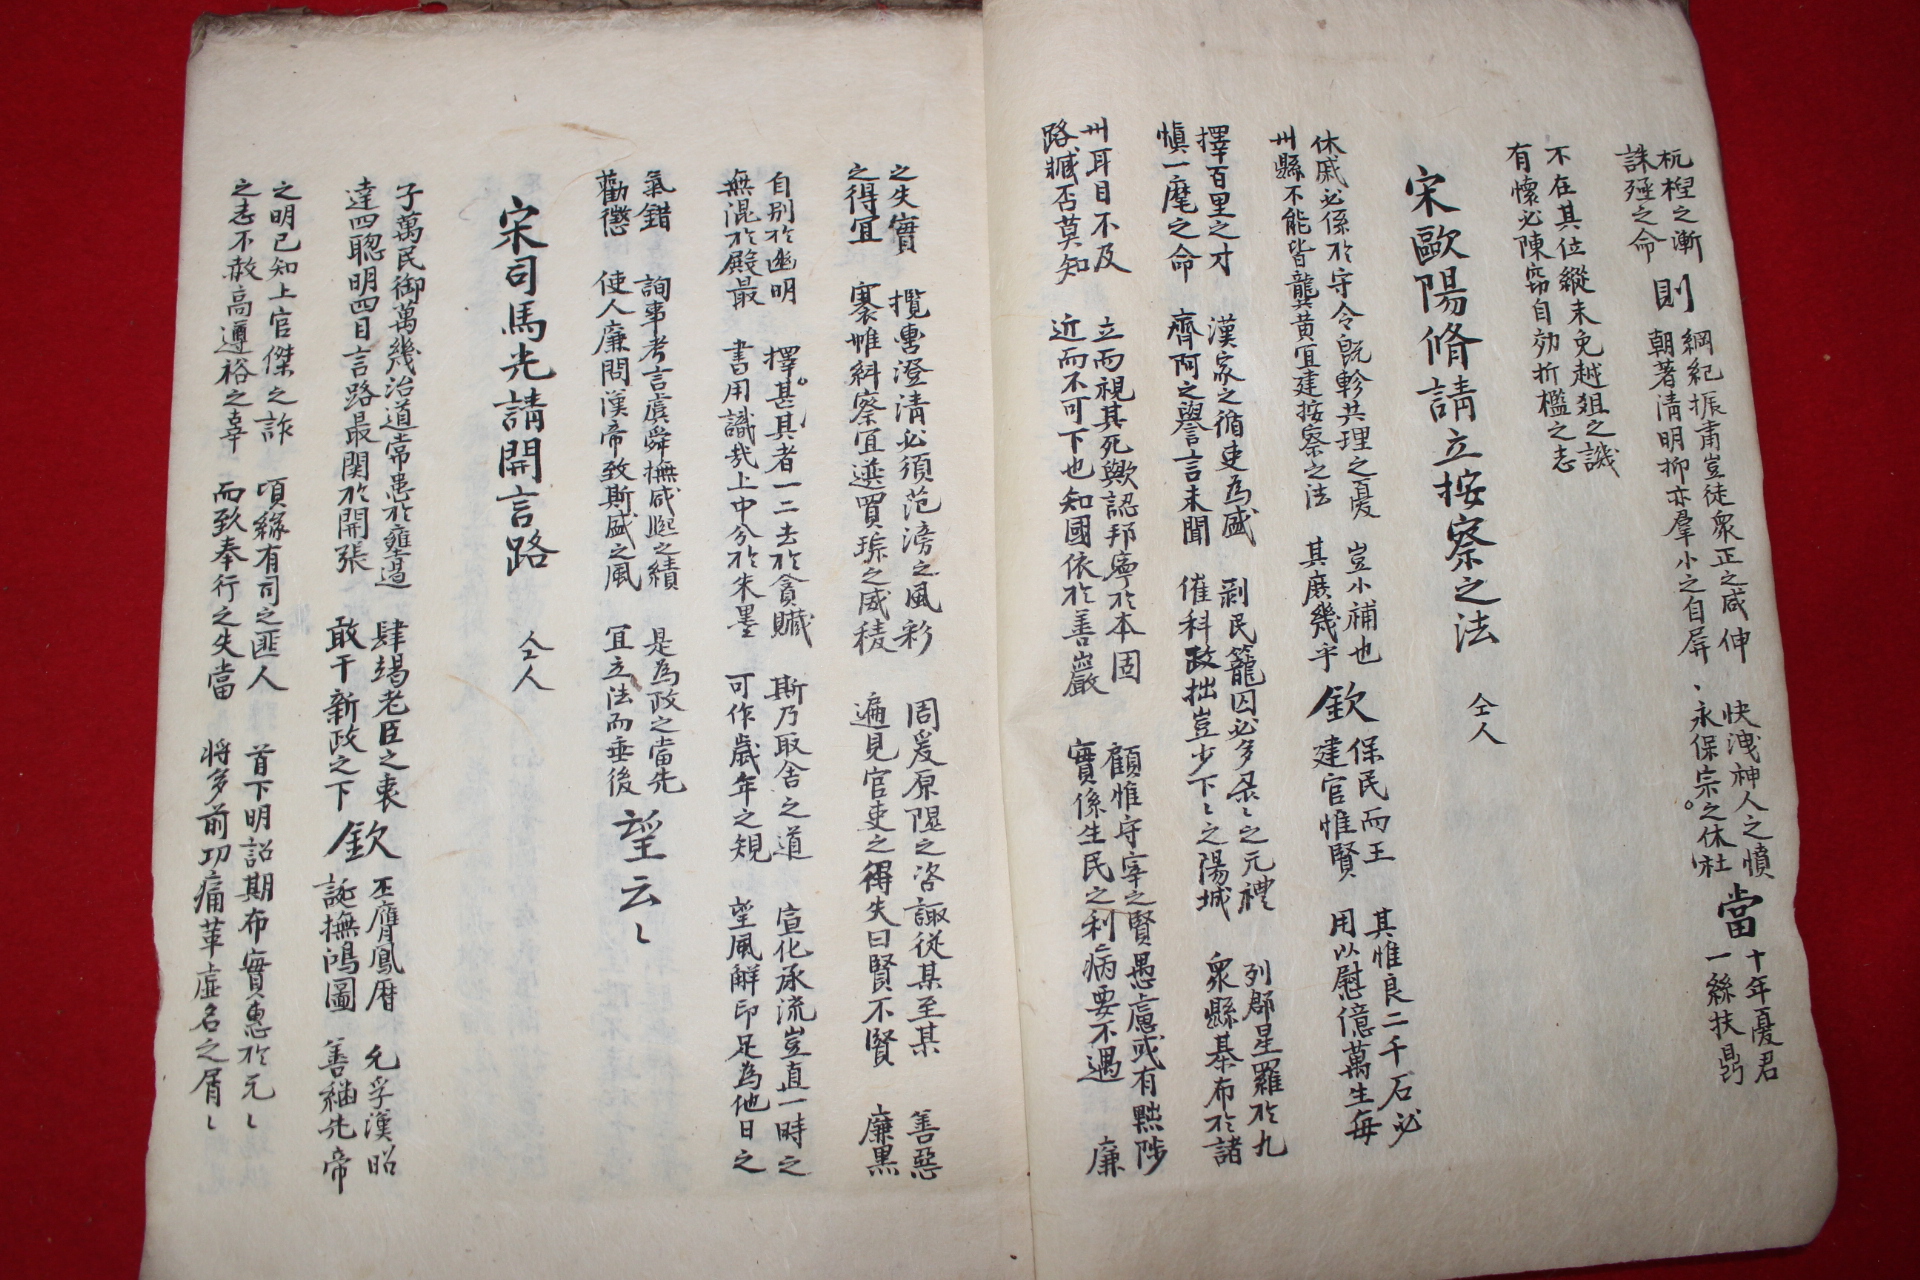 杌楻之漸 綱紀振肅豈徒衆正之咸伸 快洩神人之憤 十年憂君
誅殛之命 則 朝著清明抑亦羣小之自屏 永保宗之休社 當 一絲扶鼎
不在其位縱未免越俎之譏
有懷必陳窃自効折檻之志
宋歐陽脩請立按察之法 仝人
休戚必係於守令旣軫共理之憂 豈小補也 保民而王 其惟良二千石必
州縣不能皆龔黃宜建按察之法 其庶幾乎 欽 建官惟賢 用以慰億萬生每
擇百里之才 漢家之循吏爲盛 剥民籠囚必多彔〻之元禮 列郡星羅於九
愼一麾之命 齊阿之譽言未聞 催科政拙豈少下〻之陽城 衆縣棊布於諸
州耳目不及 立而視其死歟認邦寧於本固 顧惟守宰之賢愚慮或有黜陟
路臧否莫知 近而不可下也知國依於善巖 實係生民之利病要不過 廉
之失實 攬轡澄清必須范滂之風彩 周爰原隰之咨諏從某至某 善惡
之得宜 褰帷糾察宜遴賈琮之威稜 遍見官吏之得失曰賢不賢 廉黑
自別於幽明 擇甚其者一二去於貪贓 斯乃取舍之道 宣化承流豈直一時之
無混於殿最 書用識哉上中分於朱墨 可作歲年之規 望風解印足為他日之
氣錯 詢事考言虞舜撫咸熙之績 是為政之當先
勸懲 使人廉問漢帝致斯盛之風 宜立法而垂後 望云〻
宋司馬光請開言路 仝人
子萬民御萬幾治道常患於壅遏 肆竭老臣之衷 丕膺鳳曆 允孚漢昭
達四聰明四目言路最関於開張 敢干新政之下 欽 誕撫鴻圖 善紬先帝
之明已知上官傑之詐 頃緣有司之匪人 首下明詔期布實惠於元〻
之志不赦高遵裕之辜 而致奉行之失當 将多前功痛革虛名之屑〻